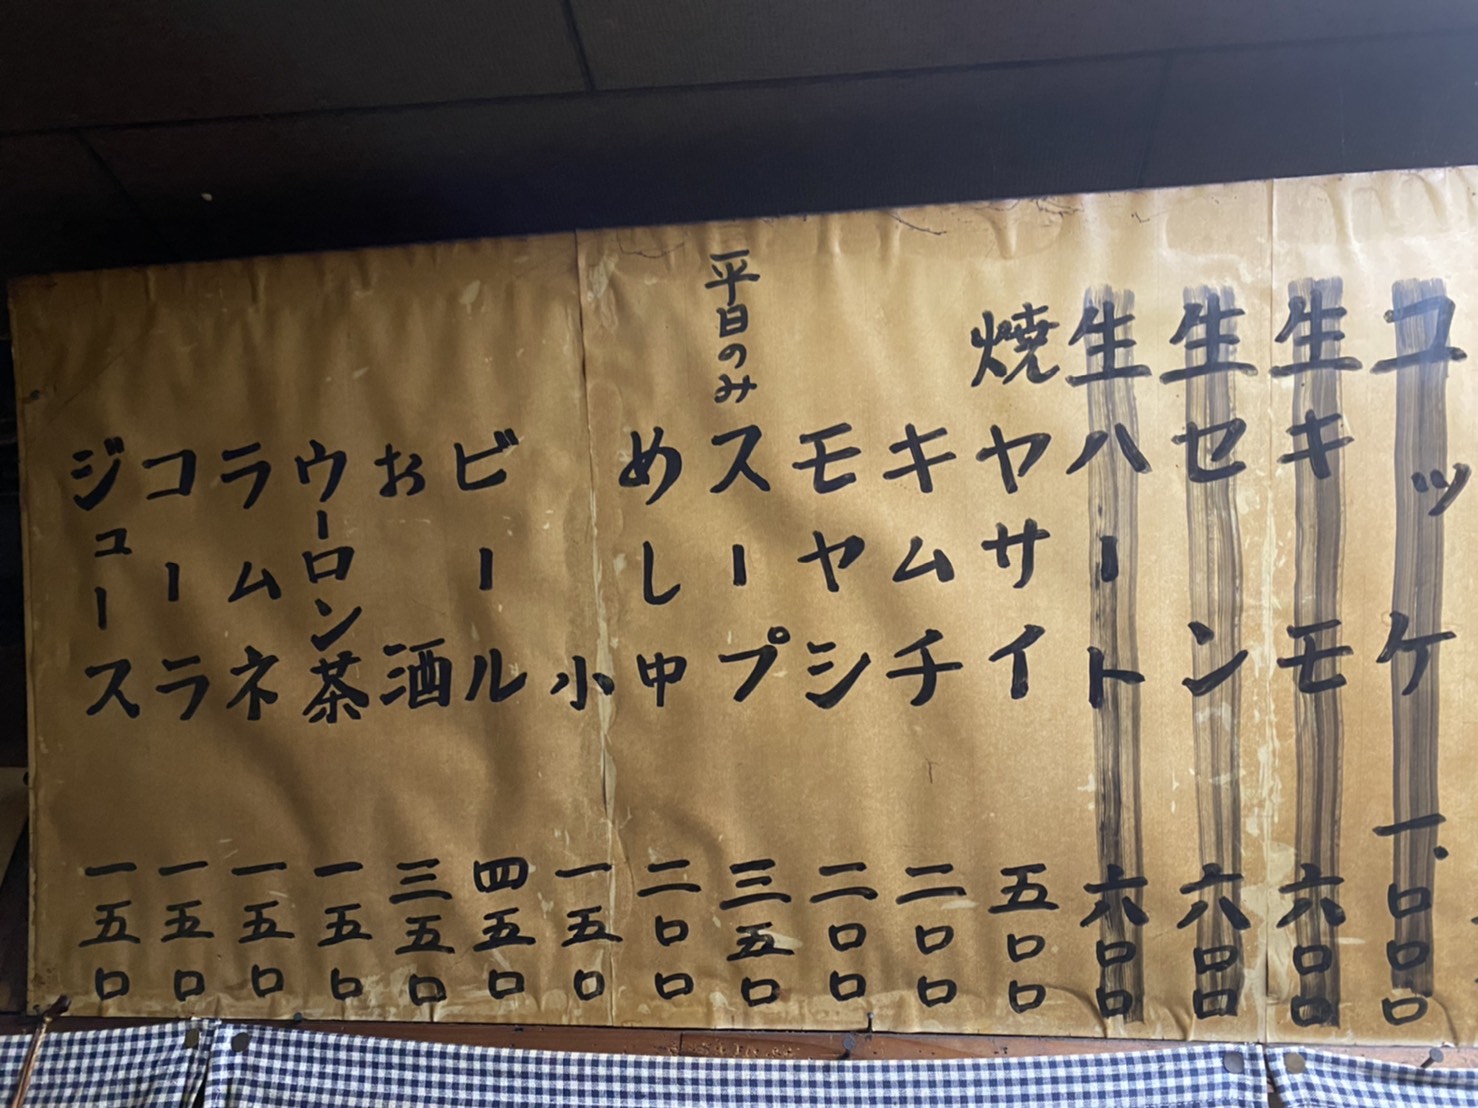 ユッケ 一.〇〇〇
生キモ 六〇〇
生セン 六〇〇
生ハート 六〇〇
焼ヤサイ 五〇〇
キムチ 二〇〇
モヤシ 二〇〇
平日のみ スープ 三五〇
めし中 二〇〇
小 一五〇
ビール 四五〇
お酒 三五〇
ウーロン茶 一五〇
ラムネ 一五〇
コーラ 一五〇
ジュース 一五〇